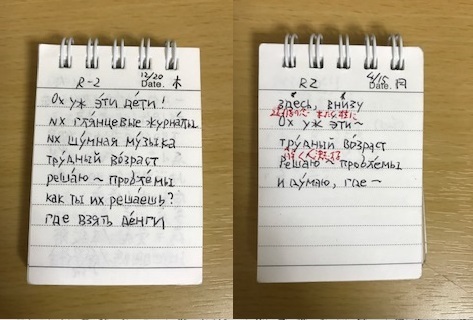 R-2 12/20 Date. 木
Ох уж э́ти де́ти!
их гля́нцевые журна́лы
их шу́мная му́зыка
тру́дный во́зраст
реша́ю ~ пробле́мы
как ты их реша́ешь?
где взять де́нги
R2 4/15 Date.
здесь, внизу
Ох уж эти~
трудный во́зраст
решаю ~ проблемы
и думаю, где ~